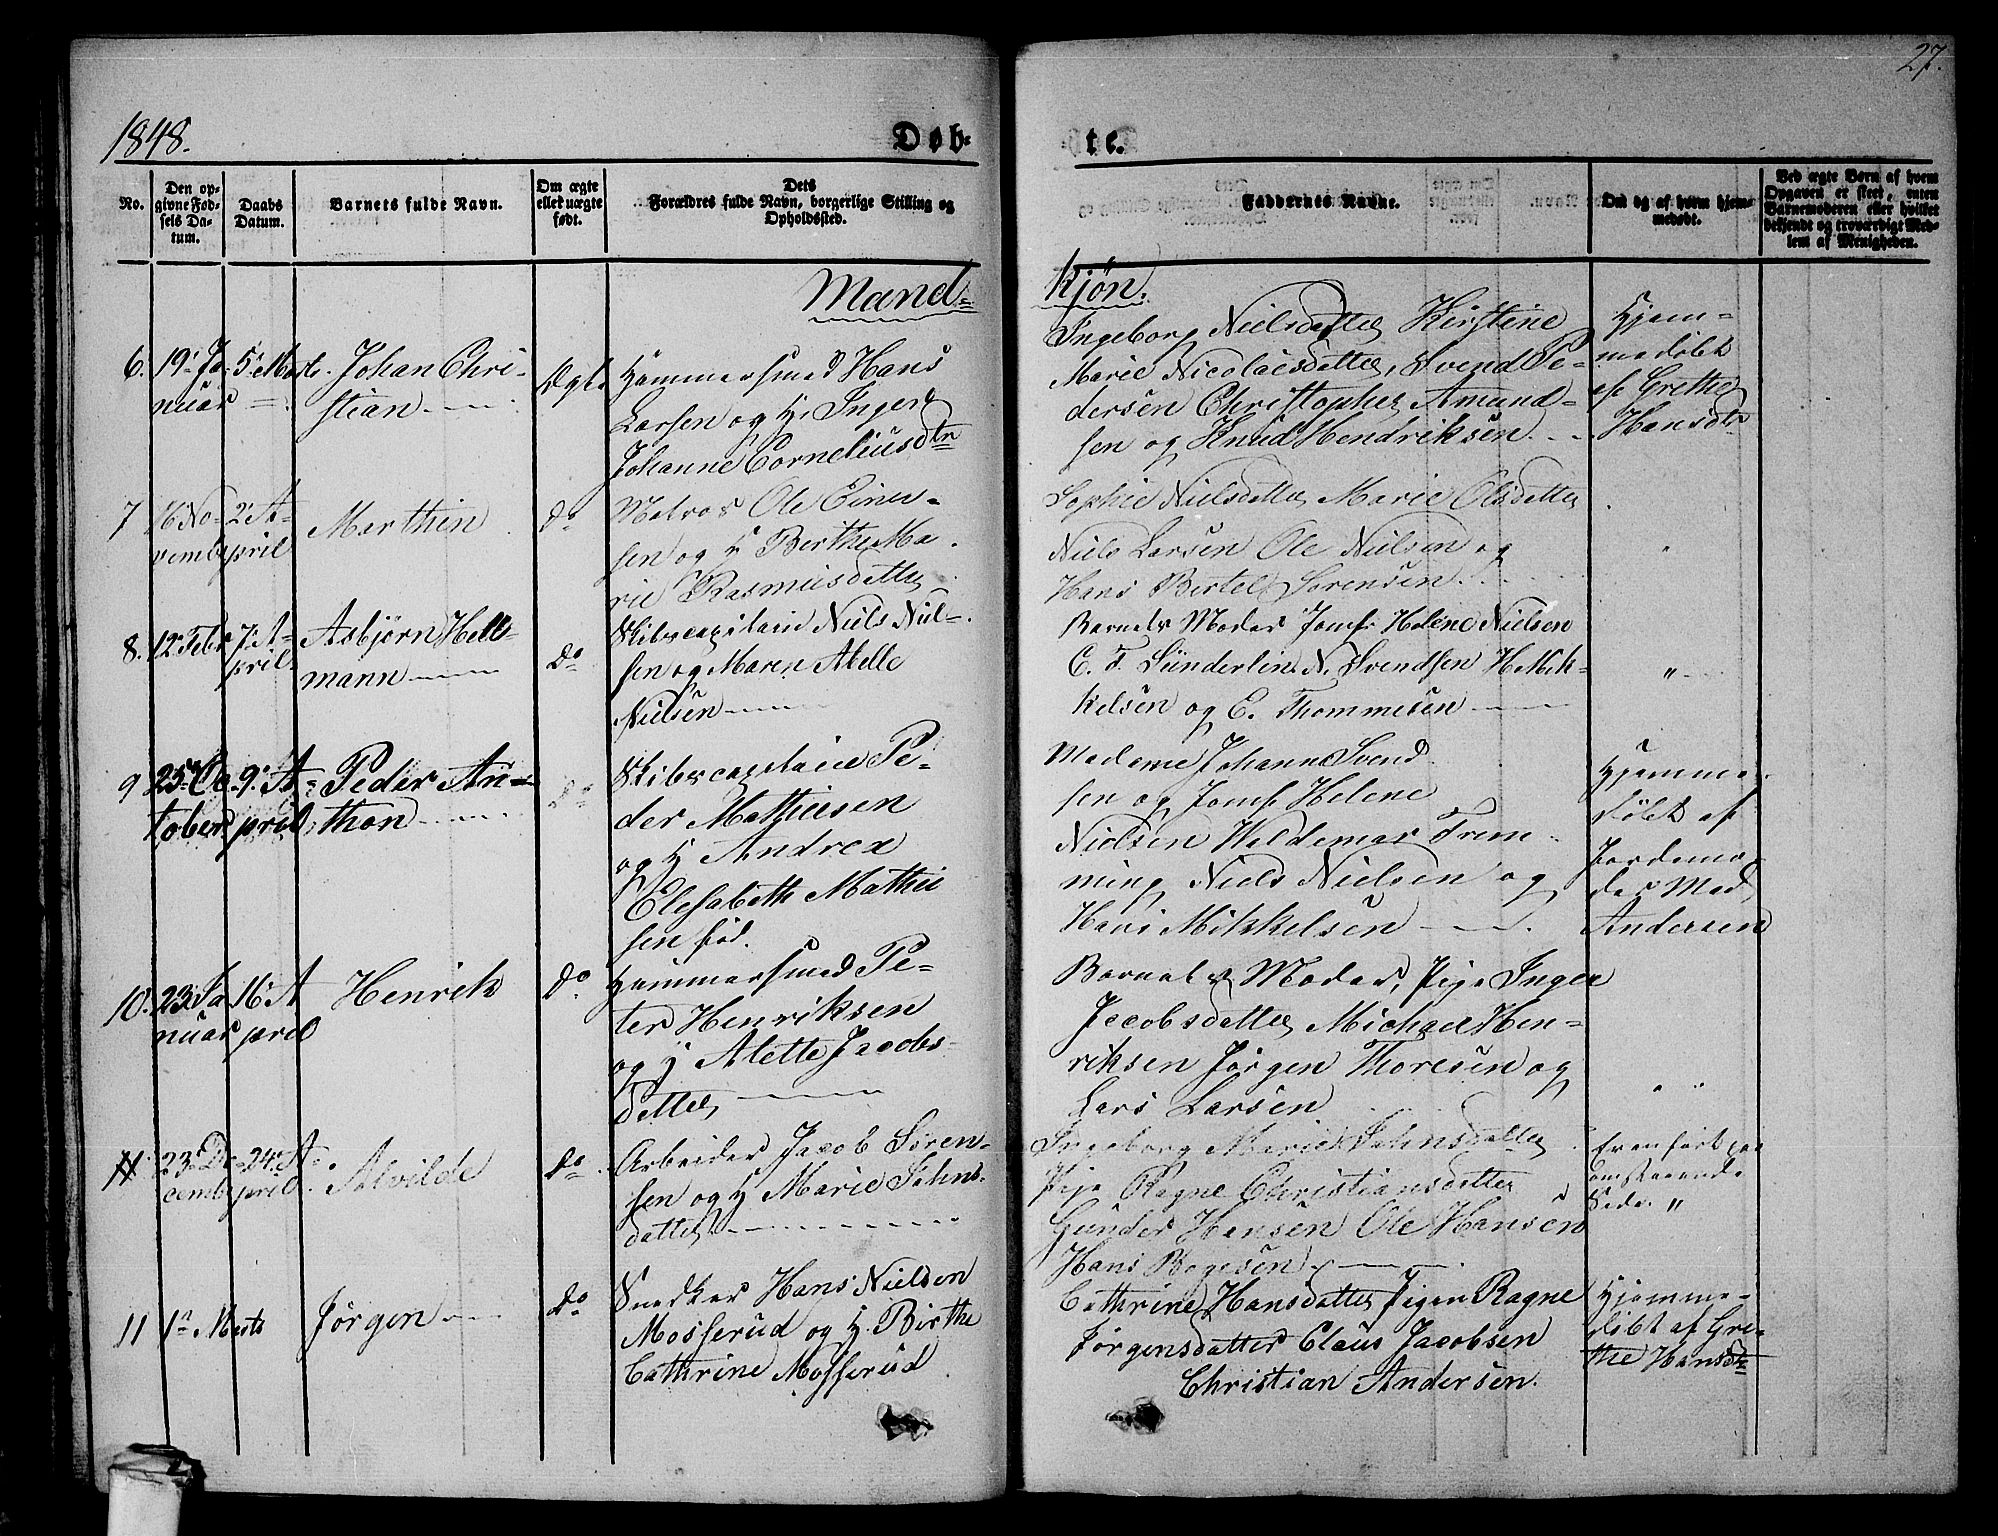 27.
1848.
Døb-
te.
No.
Den op-
givne Fød-
sels Da-
tum.
Daabs
Datum.
Barnets fulde Navn.
Om ægte
eller uægte
født.
Dets
Forældres fulde Navn, borgerlige Stilling og
Opholdssted.
Faddernes Navne.
Om og af hvem hjem-
medøbt.
Ved ægte Børn af hvem
Opgaven er skeet, enten
Barnemoderen eller hvilket
bekjendt og troværdigt Med-
lem af Menigheden.
Mand-
Kjøn.
6. 19. Ja- 5. Marts. Johan Chri- Ægte Hammersmed Hans
nuar stian
Larsen og H. Inger
Johanne Corneliusdtr
Ingeborg Nielsdatter Kirstine
Marie Nicolaisdatter, Svend Pe-
dersen Christopher Amund-
sen og Knud Hendriksen
Hjem-
medøbt
af Grethe
Hansdtr
7 16 No- 2. A- Marthin Do Matros Ole Einer-
vembr pril
sen og H Berthe Ma-
rie Rasmusdatter
Sophie Nielsdatter Marie Olsdatter
Niels Larsen Ole Nielsen og
Hans Bertel Sørensen
8. 12 Febr 7. A- Asbjørn Hell- Do Skibscapitain Niels Niel-
pril mann
sen og Maren Abelle
Nielsen
Barnets Moder Jomf. Helene Nielsen
C. F. Sünderlin. N. Svendsen H. Mik-
kelsen og C. Thommesen
"
9 25 Oc- 9. A- Peder An- Do Skibscapitain Pe-
tober pril thon
der Mathiesen
og H Andrea
Elisabeth Mathie
sen fød.
Madame Johanne Svend
sen og Jomf Helene
Nielsen Waldemar Frem-
ming Niels Nielsen og
Hans Mikkelsen
Hjemme
døbt af
Jordemo-
der Mad
Andersen
10. 23. Ja 16. A Henrik Do Hammersmed Pe-
nuar pril
ter Henriksen
og H Alette Jacobs-
datter
Barnets Moder, Pige Inger
Jacobsdatter Michael Hen-
riksen Jørgen Thoresen og
Lars Larsen
" "
11 23 De- 24. A- Alvilde Do Arbeider Jacob Søren-
cembr pril.
sen og H Marie Jahns-
datter
Ingeborg Marie Jahnsdatter
Pige Ragne Christiansdatter
Gunder Hansen Ole Hansen
Hans Bogesen
omstaaende
Side. "
11 1n Marts Jørgen Do Snedker Hans Nielsen
Mosserud og H. Birthe
Cathrine Mosserud
Cathrine Hansdatter Pigen Ragne
Jørgensdatter Claus Jacobsen
Christian Andersen.
Hjemme-
døbt af Gre-
the Hansdtr